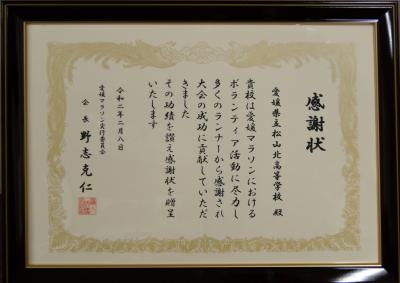 感謝状
愛媛県立松山北高等学校 殿
貴校は愛媛マラソンにおける
ボランティア活動に尽力し
多くのランナーから感謝され
大会の成功に貢献していただ
きました
その功績を讃え感謝状を贈呈
いたします
令和二年二月八日
愛媛マラソン実行委員会
会長 野志克仁